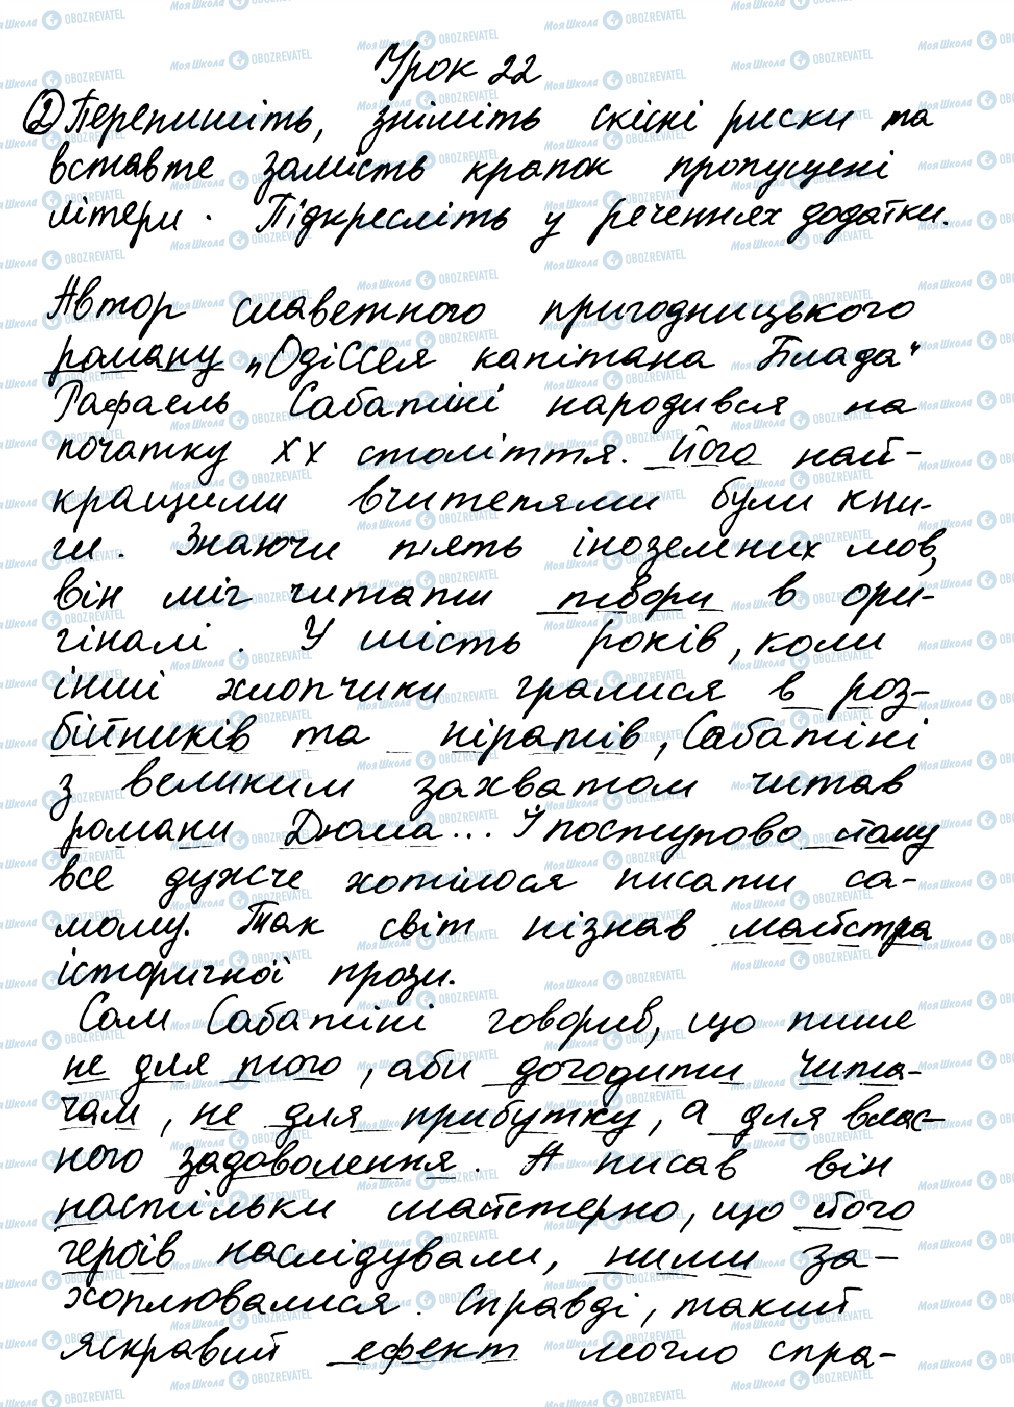 Урок 22
② Перепишіть, зніміть скісні риски та
вставте замість крапок пропущені
літери. Підкресліть у реченнях додатки.
Автор славетного пригодницького
роману „Одіссея капітана Блада"
Рафаель Сабатіні народився на
початку ХХ століття. Його най-
кращими вчителями були кни-
ги. Знаючи п'ять іноземних мов,
він міг читати твори в ори-
гіналі. У шість років, коли
інші хлопчики гралися в роз-
бійників та піратів, Сабатіні
з великим захватом читав
романи Дюма... І поступово йому
все дужче хотілося писати са-
мому. Так світ пізнав майстра
історичної прози.
Сам Сабатіні говорив, що пише
не для того, аби догодити чита-
чам, не для прибутку, а для влас-
ного задоволення. А писав він
настільки майстерно, що його
героїв наслідували, ними за-
хоплювалися. Справді, такий
яскравий ефект могло спра-